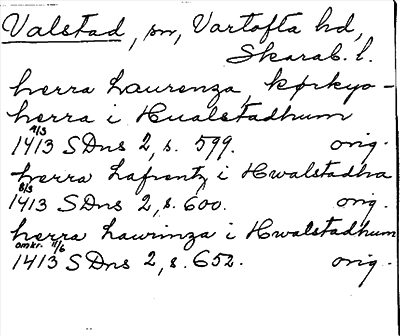 Valstad, sn, Vartofta hd,
Skarab. l.
herra Laurenza, kørkyo-
herra i Hualstadhum
4/3
1413 SDns 2, s. 599. orig.
herra Lafrentz i Hwalstadha
8/3
1413 SDns 2, s. 600. orig.
herra Lawrinza i Hwalstadhum
omkr. 11/6
1413 SDns 2, s. 652. orig.